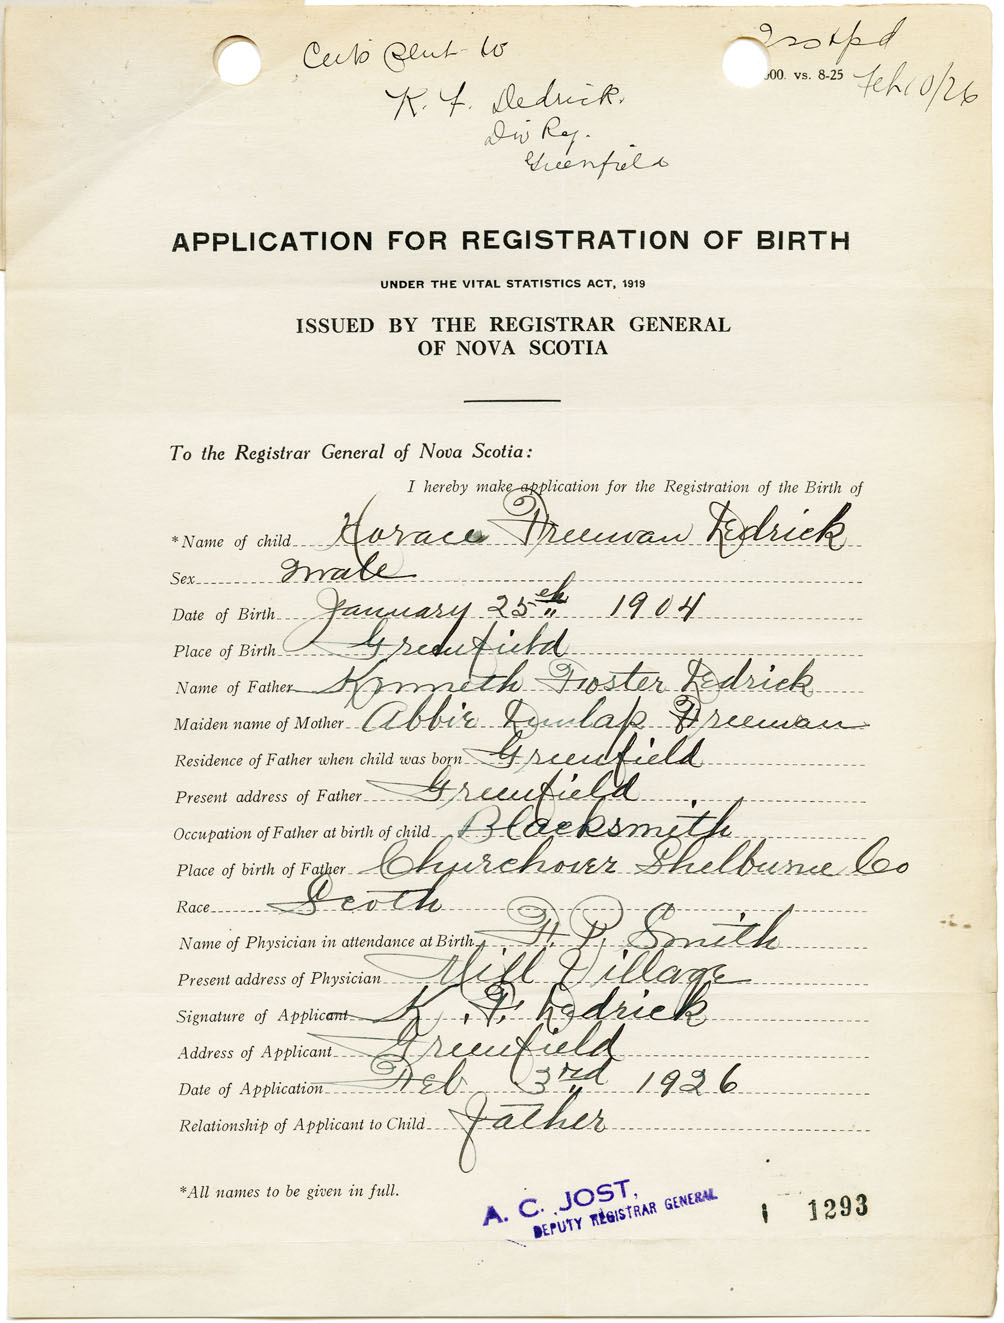 Cert's Sent to
K. F. Dedrick.
Div Reg.
Greenfield
pd
00. vs. 8-25
Feb 10/26
APPLICATION FOR REGISTRATION OF BIRTH
UNDER THE VITAL STATISTICS ACT, 1919
ISSUED BY THE REGISTRAR GENERAL
OF NOVA SCOTIA
To the Registrar General of Nova Scotia:
I hereby make application for the Registration of the Birth of
*Name of child Horace Freeman Dedrick
Sex male
Date of Birth January 25th 1904
Place of Birth Greenfield
Name of Father Kenneth Foster Dedrick
Maiden name of Mother Abbie Dunlap Freeman
Residence of Father when child was born Greenfield
Present address of Father Greenfield
Occupation of Father at birth of child Blacksmith
Place of birth of Father Churchover Shelburne Co
Race Scoth
Name of Physician in attendance at Birth F. P. Smith
Present address of Physician Mill Village
Signature of Applicant K. F. Dedrick
Address of Applicant Greenfield
Date of Application Feb 3rd 1926
Relationship of Applicant to Child Father
*All names to be given in full.
A. C. JOST,
DEPUTY REGISTRAR GENERAL
1293